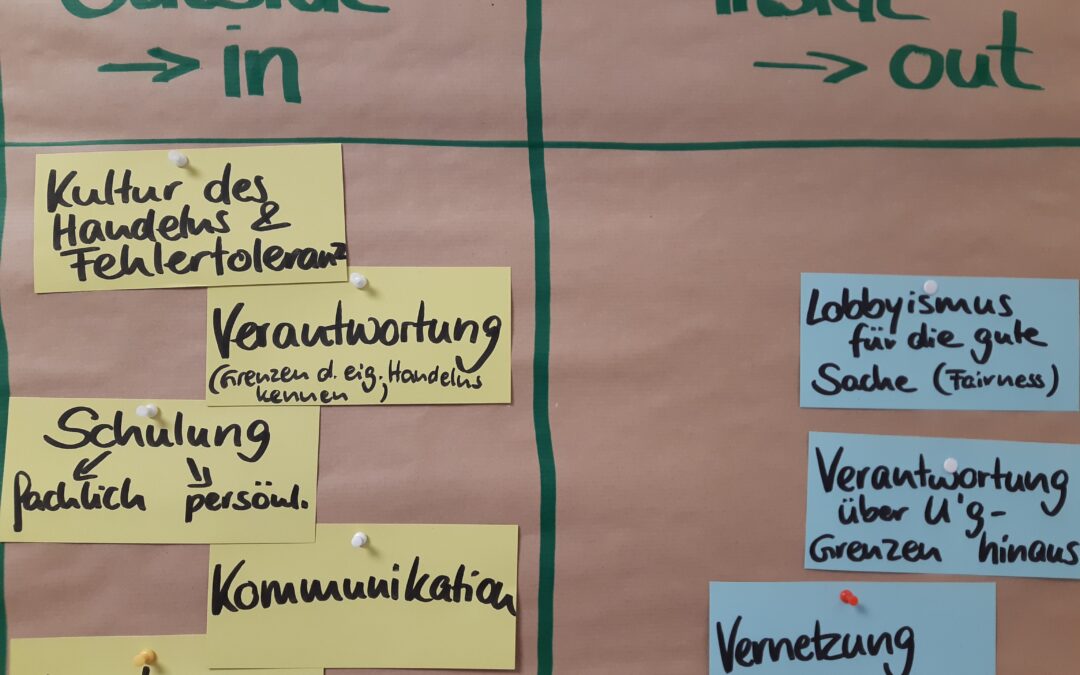 Outside
→ in
Inside
→ out
Kultur des
Handelns &
Fehlertoleranz
Verantwortung
(Grenzen d. eig. Handelns
kennen)
Schulung
fachlich persönl.
Kommunikation
Lobbyismus
für die gute
Sache (Fairness)
Verantwortung
über U'g-
Grenzen hinaus
Vernetzung